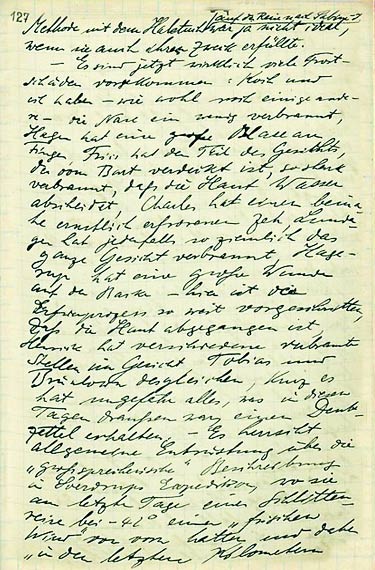 127
Methode mit dem Halstuch war ja nicht ideal,
wenn sie auch ihren Zweck erfüllte.
– Es sind jetzt wirklich viele Frost-
schäden vorgekommen: Koch und
ich haben – wie wohl noch einige ande-
re – die Nase ein wenig verbrannt,
Hagen hat eine große Blase am
Finger, Friis hat den Teil des Gesichts,
der vom Bart verdeckt ist, so stark
verbrannt, daß die Haut Wasser
abscheidet, Charles hat einen beina-
he ernstlich erfrorenen Zeh, Lunda-
ger hat jedenfalls so ziemlich das
ganze Gesicht verbrannt, Hage-
rup hat eine große Wunde
auf der Backe – hier ist der
Erfrierprozess so weit vorgeschritten,
daß die Haut abgegangen ist,
Henrik hat verschiedene verbrannte
Stellen im Gesicht, Tobias und
Brönlund desgleichen, kurz es
hat ungefähr alles, was in diesen
Tagen draußen war, einen Denk-
zettel erhalten. – Es herrscht
allgemeine Entrüstung über die
Beschreibung
in Sverdrups Expedition, wo sie
am letzten Tage einer Schlitten-
reise bei -42° einen „frischen
Wind" von vorn hatten und dabei
„in den letzten Kilometern